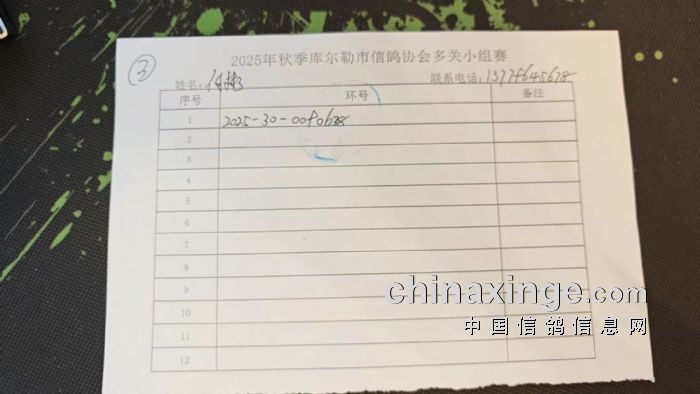 ③
2025年秋季库尔勒市信鸽协会多关小组赛
姓名: 联系电话:
序号 环号 备注
1 2025-30-0090638
2
3
4
5
6
7
8
9
10
11
12
chinaxinge.com
中国信鸽信息网